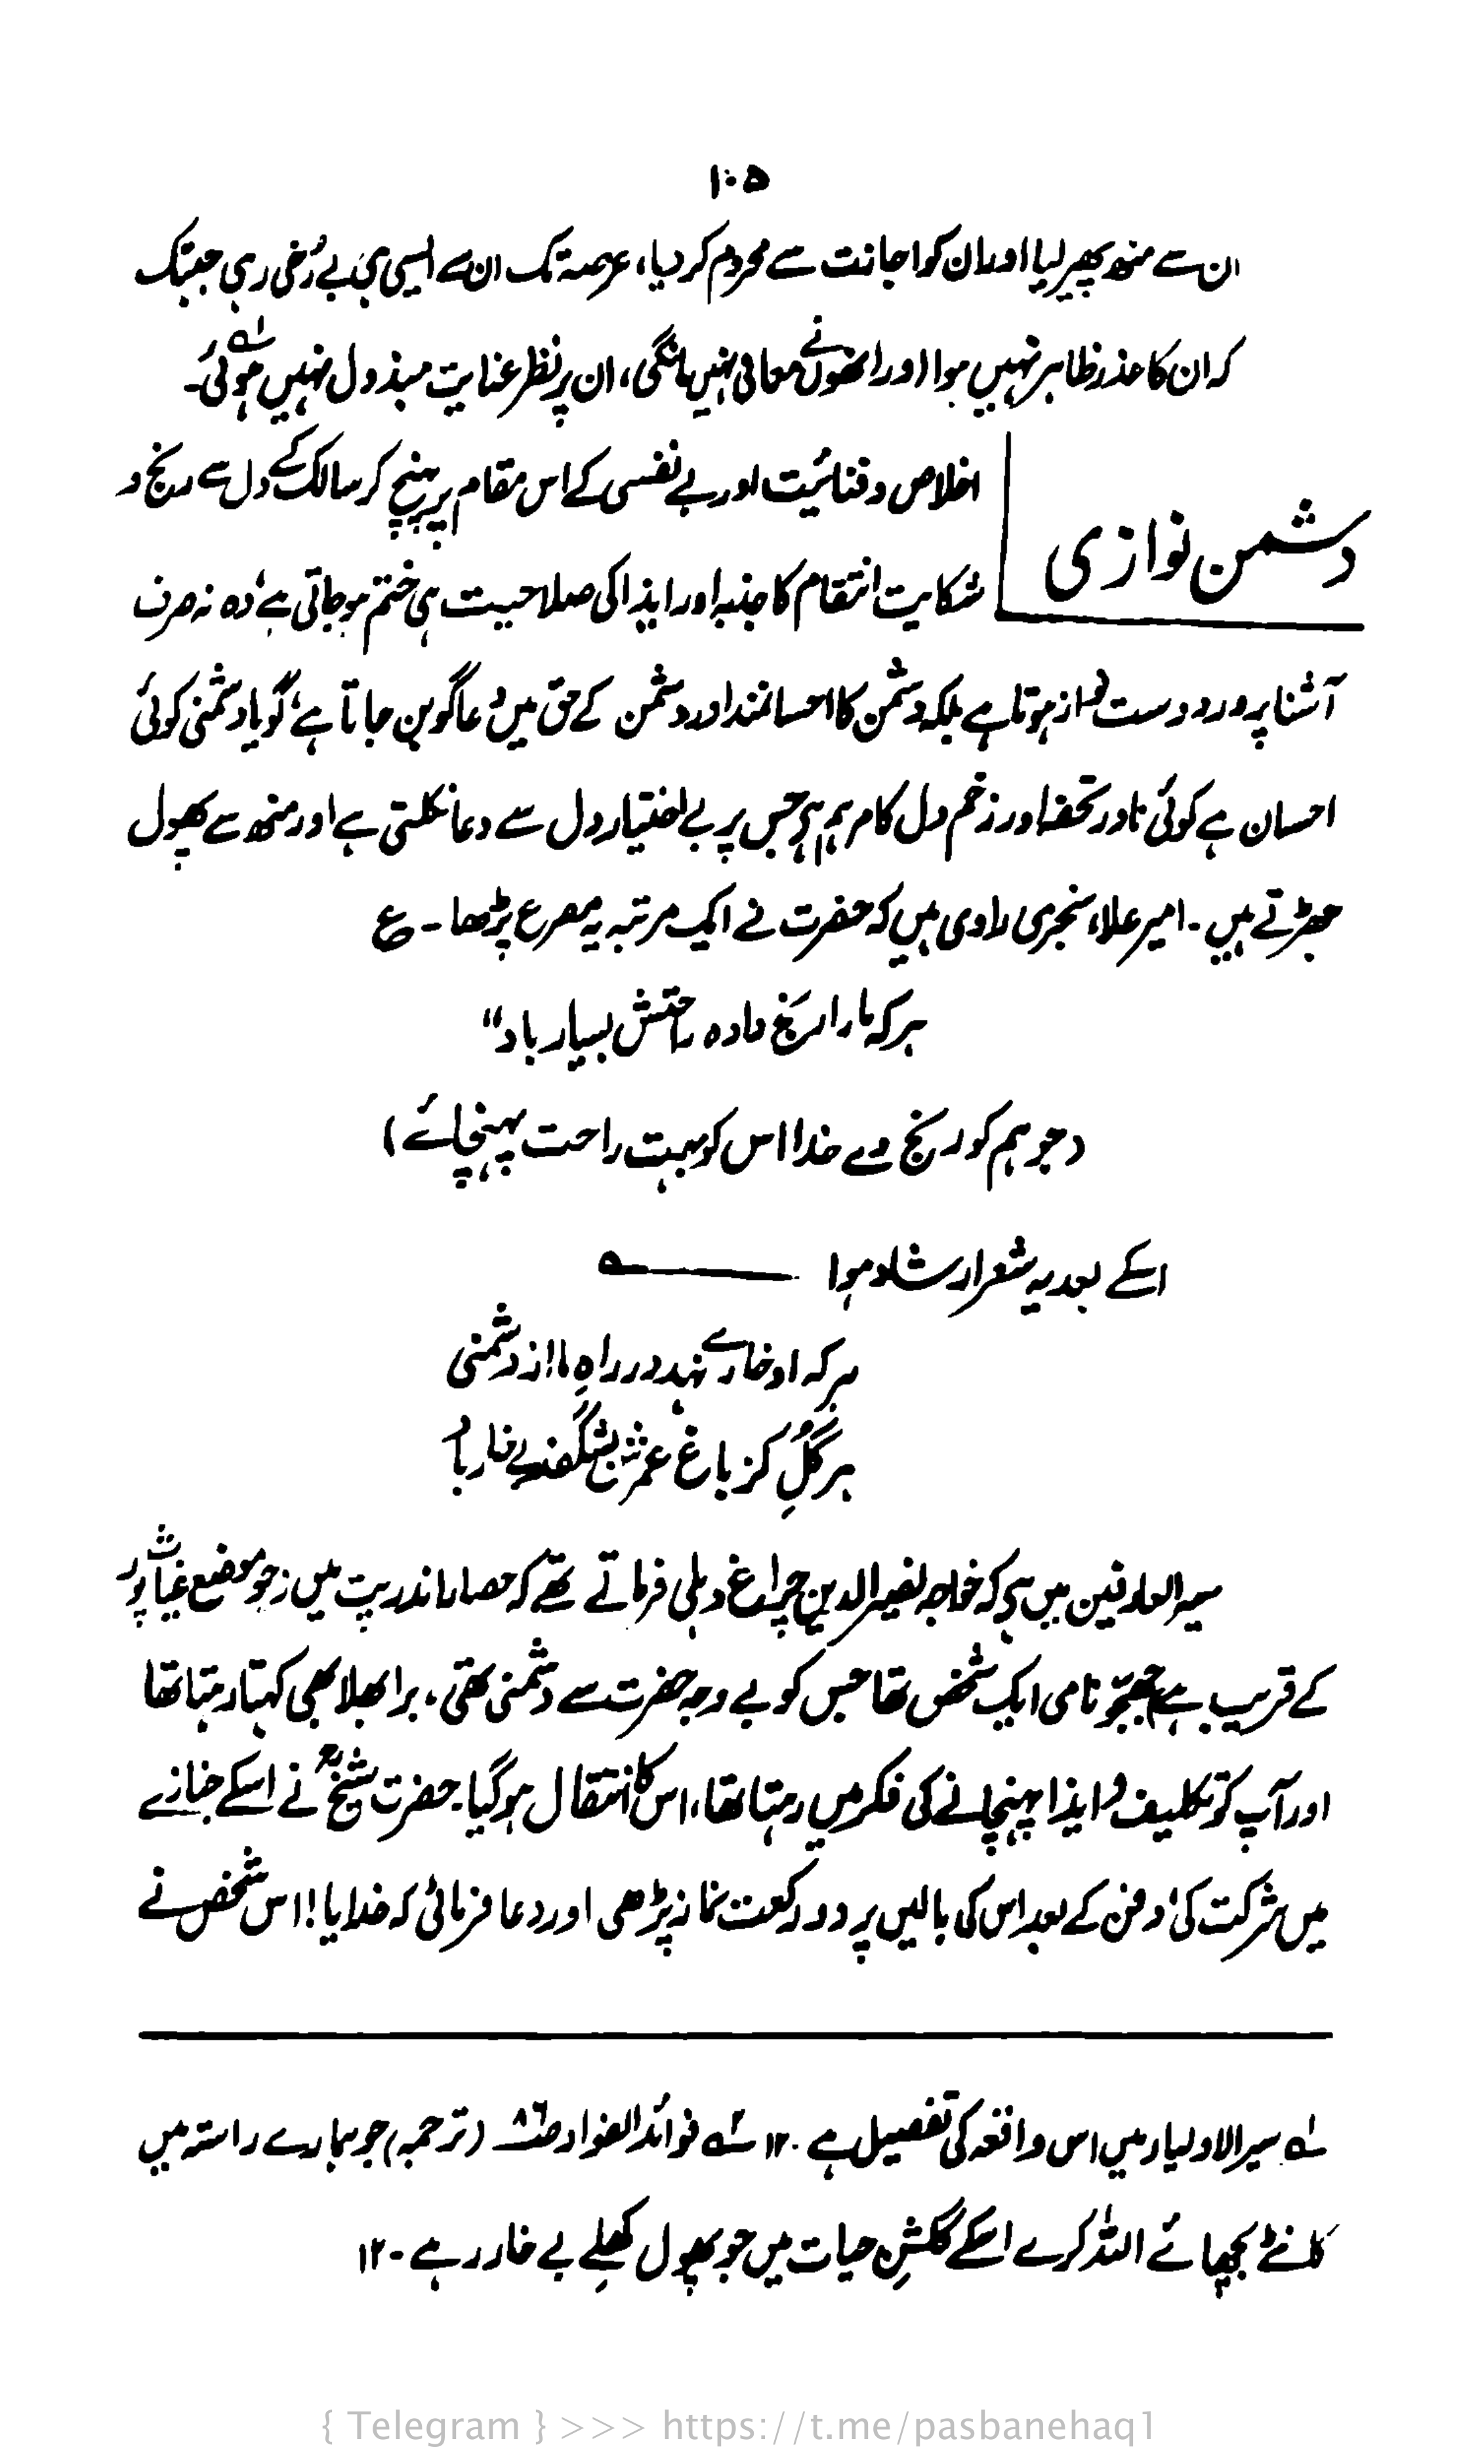 ۱۰۵
ان سے منھ پھیر لیا اور ان کو اجانت سے محروم کر دیا، عرصہ تک ان سے ایسی ہی بے رُخی رہی جبتک
کہ ان کا عذر ظاہر نہیں ہوا اور انھوں نے معافی نہیں مانگی، ان پر نظر عنایت مبذول نہیں ہوئی۔ لہ
دشمن نوازی
اخلاص و فنائیت اور بے نفسی کے اس مقام پر پہنچ کر سالک کے دل سے رنج و
شکایت انتقام کا جذبہ اور ایذا کی صلاحیت ہی ختم ہو جاتی ہے، وہ نہ صرف
آشنا پرور و دوست نواز ہوتا ہے بلکہ دشمن کا احسانمند اور دشمن کے حق میں دُعا گو بن جاتا ہے، گویا دشمنی کوئی
احسان ہے کوئی نادر تحفہ اور زخم دل کا مرہم ہے جس پر بے اختیار دل سے دعا نکلتی ہے اور منھ سے پھول
جھڑتے ہیں۔ امیر علاء سنجری راوی ہیں کہ حضرت نے ایک مرتبہ یہ مصرع پڑھا۔ ع
ہر کہ مارا رنج دادہ راحتش بسیار باد"
(جو ہم کو رنج دے خدا اس کو بہت راحت پہنچائے)
اسکے بعد یہ شعر ارشاد ہوا ؎
ہر کہ او خارے نہد در راہِ ما از دشمنی
ہر گُلِ کز باغ عمرش بشگفد بے خار باد
سیر العارفین میں ہے کہ خواجہ نصیر الدین چراغ دہلی فرماتے تھے کہ حصار اندرپت میں (جو موضع غیاث پور
کے قریب ہے) چھجو نامی ایک شخص تھا جس کو بے وجہ حضرت سے دشمنی تھی، برا بھلا بھی کہتا رہتا تھا
اور آپ کو تکلیف و ایذا پہنچانے کی فکر میں رہتا تھا، اس کا انتقال ہو گیا۔ حضرت شیخؒ نے اسکے جنازے
میں شرکت کی، دفن کے بعد اس کی بالیں پر دو رکعت نماز پڑھی اور دعا فرمائی کہ خدایا! اس شخص نے
لہ سیر الاولیاء میں اس واقعہ کی تفصیل ہے ۱۲۔ ۲ہ فوائد الفواد (ترجمہ) جو ہمارے راستہ میں
کانٹے بچھائے اللہ کرے اسکے گلشنِ حیات میں جو پھول کھلے بے خار رہے ۱۲۔
{ Telegram } >>> https://t.me/pasbanehaq1